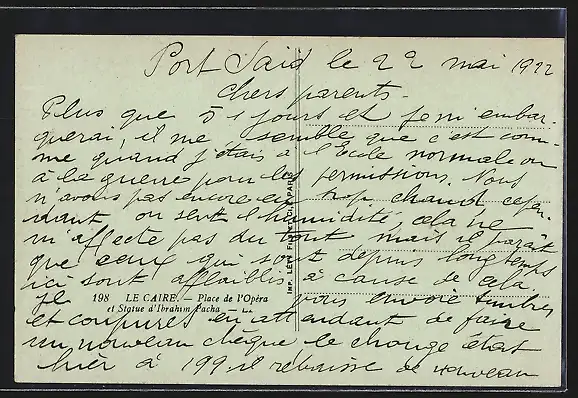 Port Said le 22 mai 1922
chers parents -
Plus que 5 jours et je m'embar-
querai, il me semble que c'est com-
me quand j'étais à l'Ecole normale ou
à la guerre pour les permissions. Nous
n'avons pas encore eu trop chaud cepen-
dant on sent l'humidité, cela ne
m'affecte pas du tout mais il paraît
que ceux qui sont depuis longtemps
ici sont affaiblis à cause de cela.
Je vous envoie timbres
198 LE CAIRE. — Place de l'Opéra
et Statue d'Ibrahim Pacha LL
et coupures en attendant de faire
un nouveau chèque le change était
hier à 199 il rebaisse de nouveau
IMP. LÉVY FILS ET Cie, PARIS